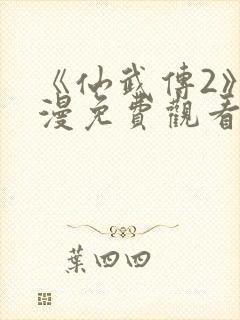 《仙武傳2》
漫免費觀看
葉四四